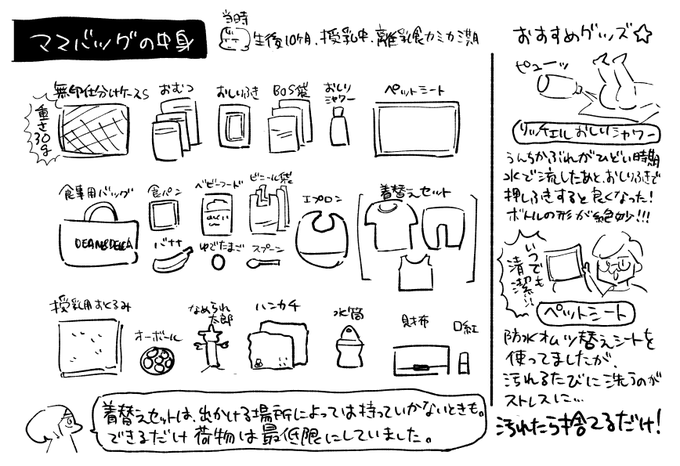 ママバッグの中身
当時
生後10ヶ月、授乳中、離乳食カミカミ期
無印仕分けケースS
重さ30g
おむつ
おしりふき
BOS袋
おしりシャワー
ペットシート
食事用バッグ
DEAN&DELCA
食パン
ベビーフード
ビニール袋
エプロン
着替えセット
バナナ
ゆでたまご
スプーン
授乳用おくるみ
オーボール
なめられ太郎
ハンカチ
水筒
財布
口紅
着替えセットは、出かける場所によっては持っていかないときも。
できるだけ荷物は最低限にしていました。
おすすめグッズ☆
ピューッ
リッチェル おしりシャワー
うんちかぶれがひどい時期
水で流したあと、おしりふきで
押しふきすると良くなった!
ボトルの形が絶妙!!!
いつでも
清潔…!
ペットシート
防水オムツ替えシートを
使ってましたが、
汚れるたびに洗うのが
ストレスに…
汚れたら捨てるだけ!